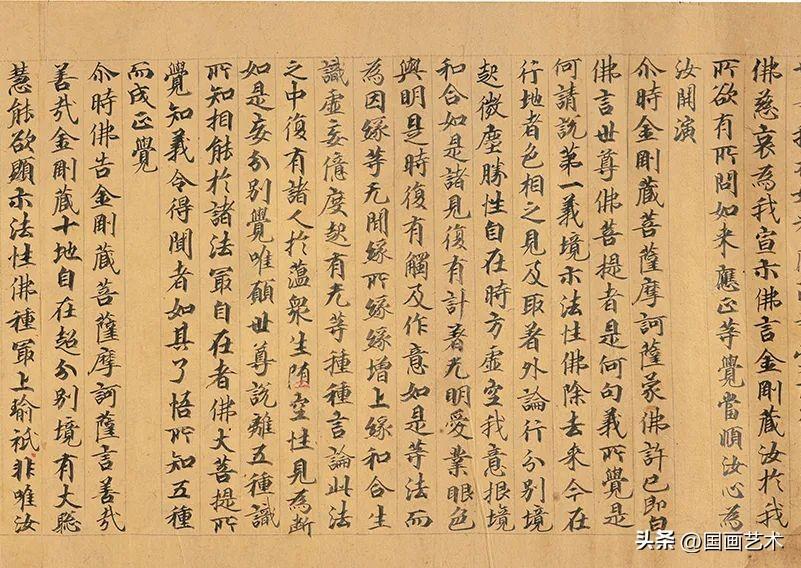 佛慈哀為我宣示佛言金剛藏汝於我
所欲有所問如来應正等覺當順汝心為
汝開演
尒時金剛藏菩薩摩訶薩蒙佛許已即白
佛言世尊佛菩提者是何句義所覺是
何請說第一義境示法性佛除去來今在
行地者色相之見及取著外論行分別境
起微塵勝性自在時方虛空我意根境
和合如是諸見復有計著无明愛業眼色
與明是時復有觸及作意如是等法而
為因緣等无間緣所緣緣增上緣和合生
識虛妄憶度起有无等種種言論此法
之中復有諸人於薀衆生墮空性見為斷
如是妄分別覺唯願世尊說離五種識
所知相能於諸法冣自在者佛大菩提所
覺知義令得聞者如其了悟所知五種
而成正覺
尒時佛告金剛藏菩薩摩訶薩言善哉
善哉金剛藏十地自在超分別境有大聡
慧能欲顯示法性佛種冣上瑜祇非唯汝
头条 @国画艺术